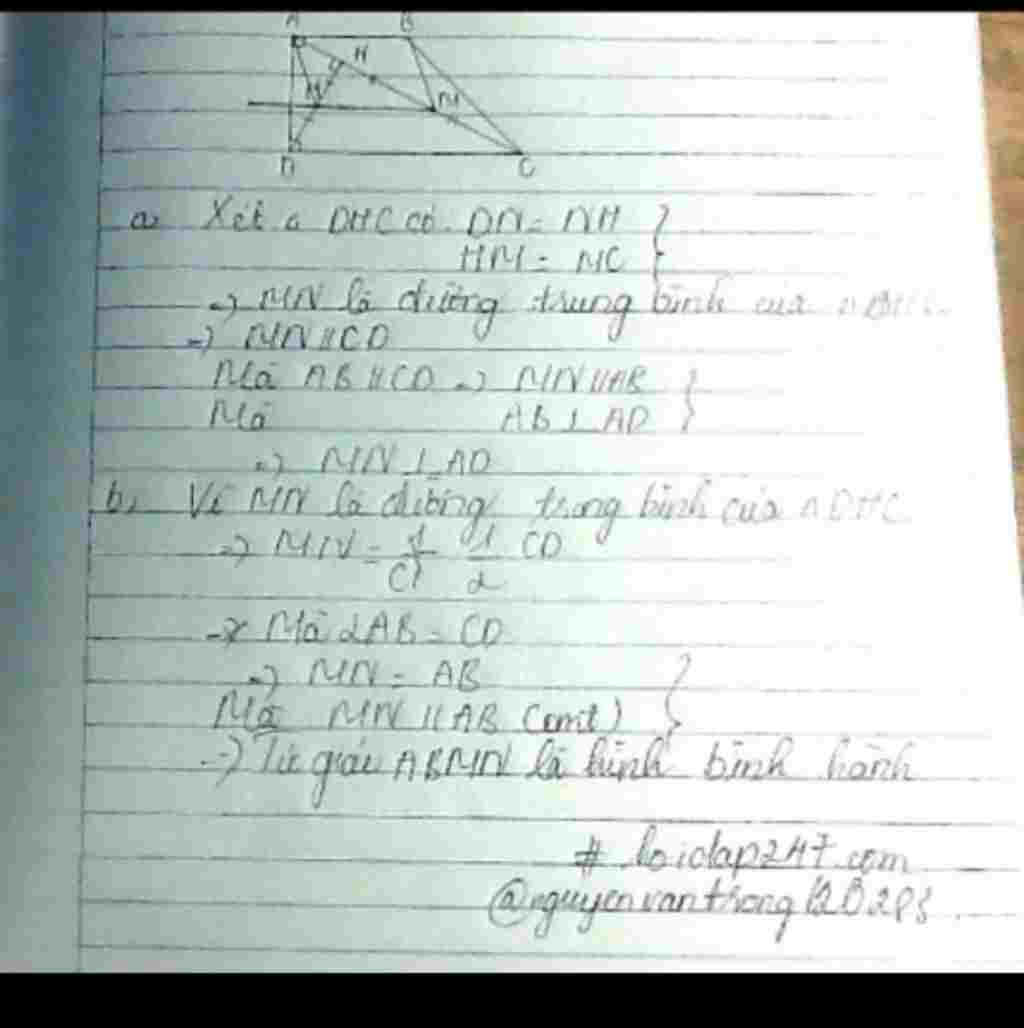 A B
H
N M
D C
a, Xét Δ DHC có: DN = NH }
HM = MC }
=> MN là đường trung bình của Δ DHC
=> MN // CD
Mà AB // CD => MN // AB }
Mà AB ⊥ AD }
=> MN ⊥ AD
b, Vì MN là đường trung bình của Δ DHC
=> MN = 1/2 CD
-> Mà 2AB = CD
=> MN = AB }
Mà MN // AB (cmt) }
=> Tứ giác ABMN là hình bình hành
# loidap247.com